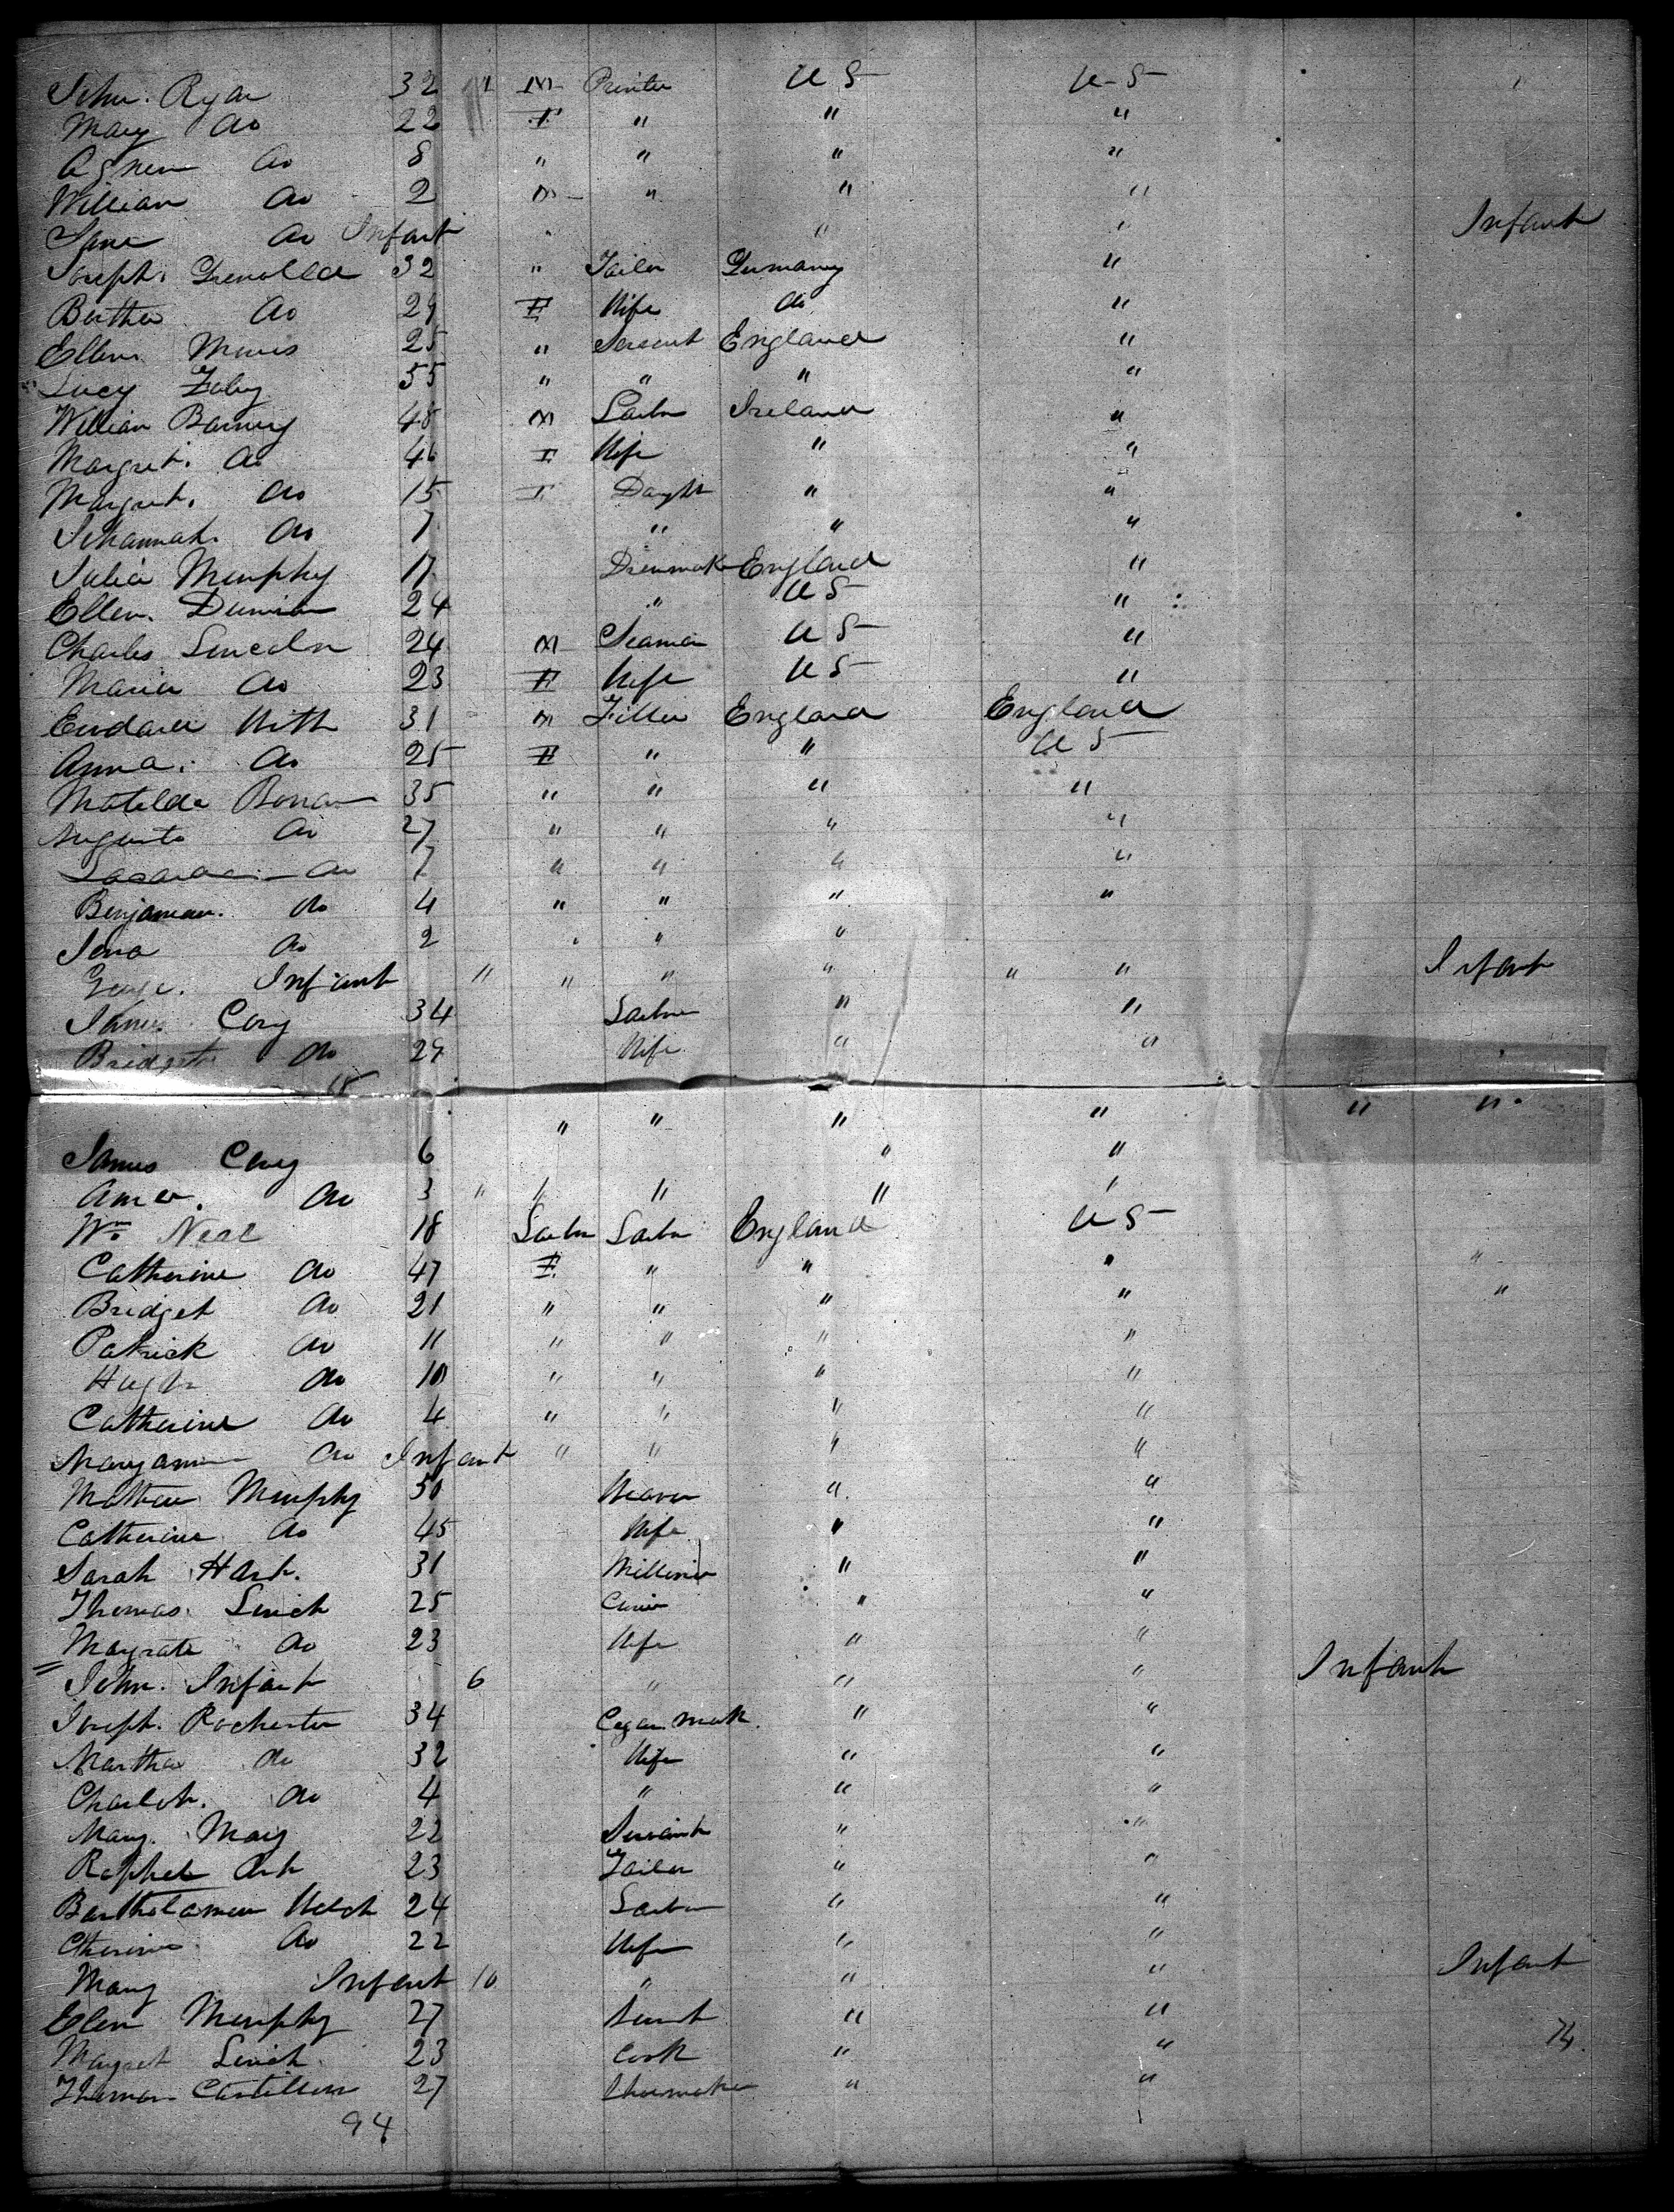 John Ryan 32 M Printer U S U-S
Mary do 22 F " " "
Agnew do 8 " " " "
William do 2 M " " "
Jane do Infant " " Infant
Joseph 32 " Tailor Germany "
Bertha do 29 F Wife do "
Ellen 25 " Servant England "
Lucy 55 " " " "
William Barney 48 M Labr Ireland "
Margret. do 46 F Wife " "
Margret. do 15 F Daught " "
Johannah. do 7 " " "
Julia Murphy 17 Dressmak England "
Ellen. 24 " U S "
Charles Lincoln 24 M Seaman U S "
Maria do 23 F Wife U S "
31 M Fitter England England
Anna. do 25 F " " U S
Matilda 35 " " " "
Augusta do 27 " " " "
do 7 " " " "
Benjaman. do 4 " " " "
do 2 " " "
George. Infant " " " " " " Infant
James Cary 34 Labr " "
Bridget do 29 Wife " "
" " " " " "
James Cary 6 " "
do 3 " " " " "
Wm Neal 18 Labr Labr England U S
Catherine do 47 F " " " "
Bridget do 21 " " " " "
Patrick do 11 " " " "
Hugh do 10 " " " "
Catherine do 4 " " " "
Maryann do Infant " " " "
Mathew Murphy 50 Weaver " "
Catherine do 45 Wife " "
Sarah Hart. 31 Milliner " "
Thomas. Linch 25 " "
Magrate do 23 Wife " "
John. Infant 6 " " " Infant
Joseph. Rochester 34 Cegar mak. " "
Martha do 32 Wife " "
Charlot. do 4 " " "
Mary. May 22 Servant " "
Raphel 23 Tailor " "
Bartholamew Welch 24 Labr " "
Ctherine do 22 Wife " "
Mary Infant 10 " " " Infant
Elen Murphy 27 Servnt " "
Magret Linch. 23 Cook " " 74.
Thomas 27 Shoemaker " "
94